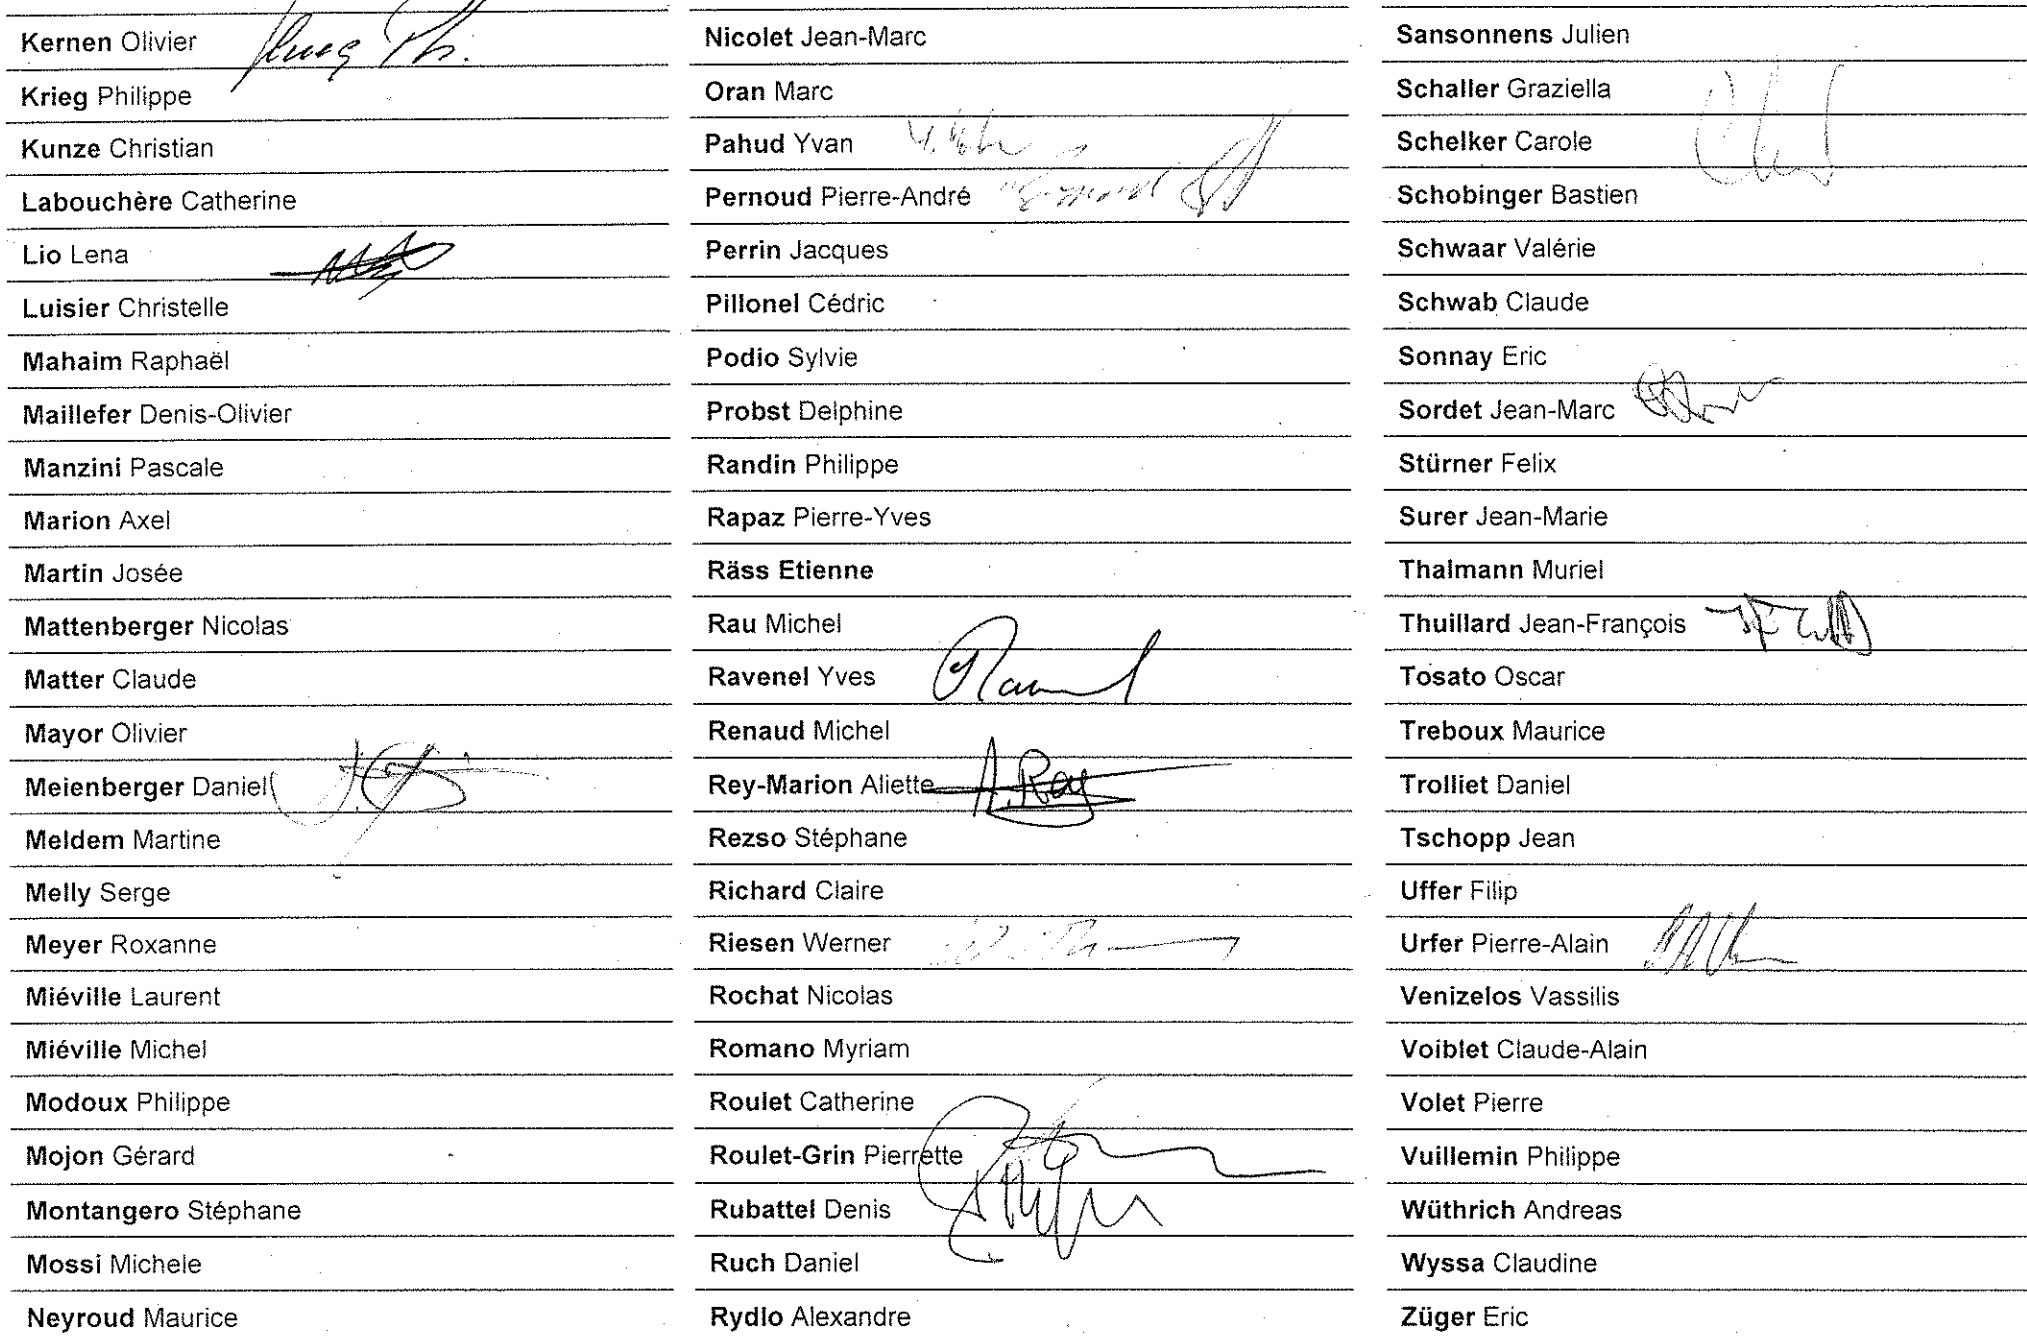 Kernen Olivier
Krieg Philippe
Kunze Christian
Labouchère Catherine
Lio Lena
Luisier Christelle
Mahaim Raphaël
Maillefer Denis-Olivier
Manzini Pascale
Marion Axel
Martin Josée
Mattenberger Nicolas
Matter Claude
Mayor Olivier
Meienberger Daniel
Meldem Martine
Melly Serge
Meyer Roxanne
Miéville Laurent
Miéville Michel
Modoux Philippe
Mojon Gérard
Montangero Stéphane
Mossi Michele
Neyroud Maurice
Nicolet Jean-Marc
Oran Marc
Pahud Yvan
Pernoud Pierre-André
Perrin Jacques
Pillonel Cédric
Podio Sylvie
Probst Delphine
Randin Philippe
Rapaz Pierre-Yves
Räss Etienne
Rau Michel
Ravenel Yves
Renaud Michel
Rey-Marion Aliette A. Rey
Rezso Stéphane
Richard Claire
Riesen Werner
Rochat Nicolas
Romano Myriam
Roulet Catherine
Roulet-Grin Pierrette
Rubattel Denis
Ruch Daniel
Rydlo Alexandre
Sansonnens Julien
Schaller Graziella
Schelker Carole
Schobinger Bastien
Schwaar Valérie
Schwab Claude
Sonnay Eric
Sordet Jean-Marc
Stürner Felix
Surer Jean-Marie
Thalmann Muriel
Thuillard Jean-François
Tosato Oscar
Treboux Maurice
Trolliet Daniel
Tschopp Jean
Uffer Filip
Urfer Pierre-Alain
Venizelos Vassilis
Voiblet Claude-Alain
Volet Pierre
Vuillemin Philippe
Wüthrich Andreas
Wyssa Claudine
Züger Eric